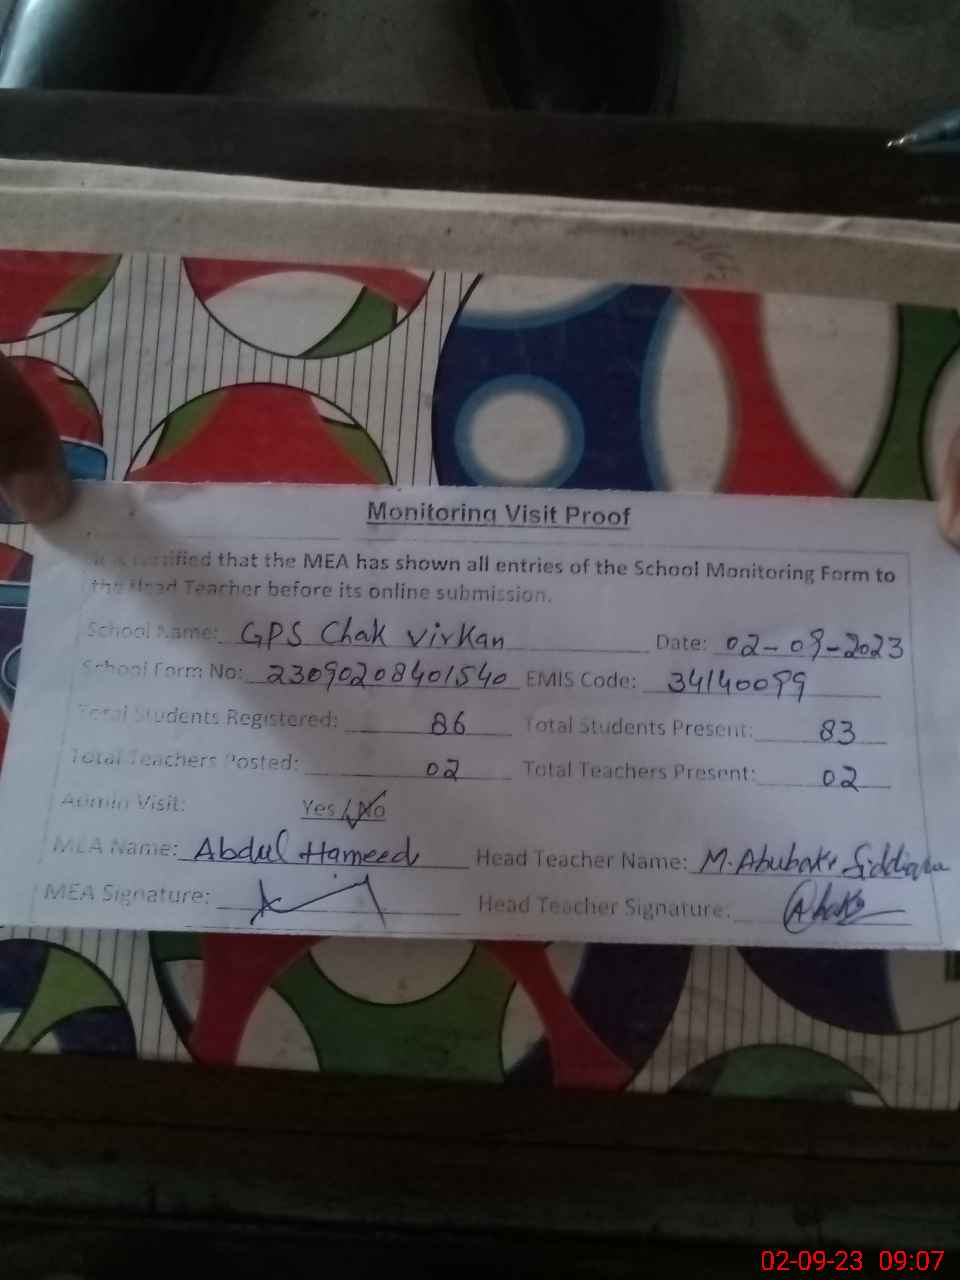 Monitoring Visit Proof
It is certified that the MEA has shown all entries of the School Monitoring Form to
the Head Teacher before its online submission.
School Name: GPS Chak Virkan Date: 02-09-2023
School Form No: 23090208401540 EMIS Code: 34140099
Total Students Registered: 86 Total Students Present: 83
Total Teachers Posted: 02 Total Teachers Present: 02
Admin Visit: Yes / No
MEA Name: Abdul Hameed Head Teacher Name: M. Abubakr Siddique
MEA Signature: Head Teacher Signature:
02-09-23 09:07